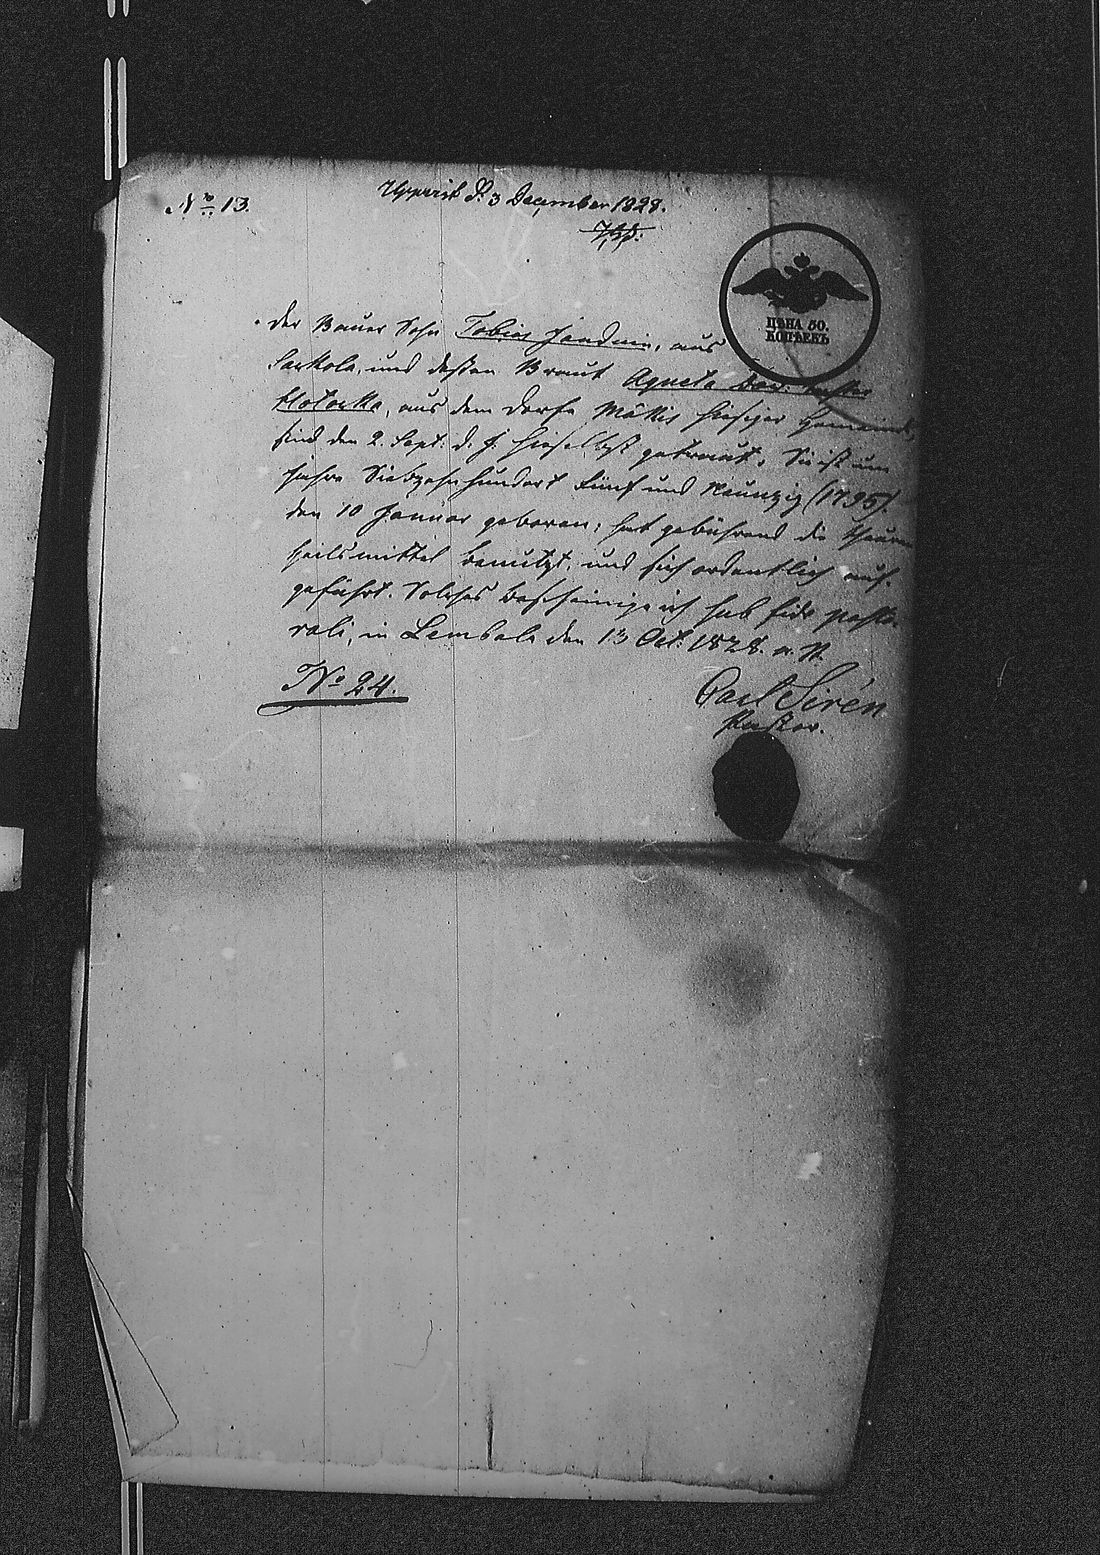 No 13.
Upvist d. 3 December 1828.
ЦѢНА 50.
КОПѢЕКЪ
Der Bauer Sohn Tobias, aus
und dessen Braut Agneta Dav:
aus dem Dorfe Mäkis hiesiger Gemeinde,
sind den 2. Sept. d. J. hieselbst getraut. Sie ist im
Jahre Siebzehnhundert Fünf und Neunzig (1795).
den 10 Januar geboren; hat gebührend die theuren
Heilsmittel benutzt, und sich ordentlich auf-
geführt. Solches bescheinige ich sub fide pasto-
rali, in Lembala den 13 Oct. 1828. a. St.
No 24.
Carl Sirén
Pastor.